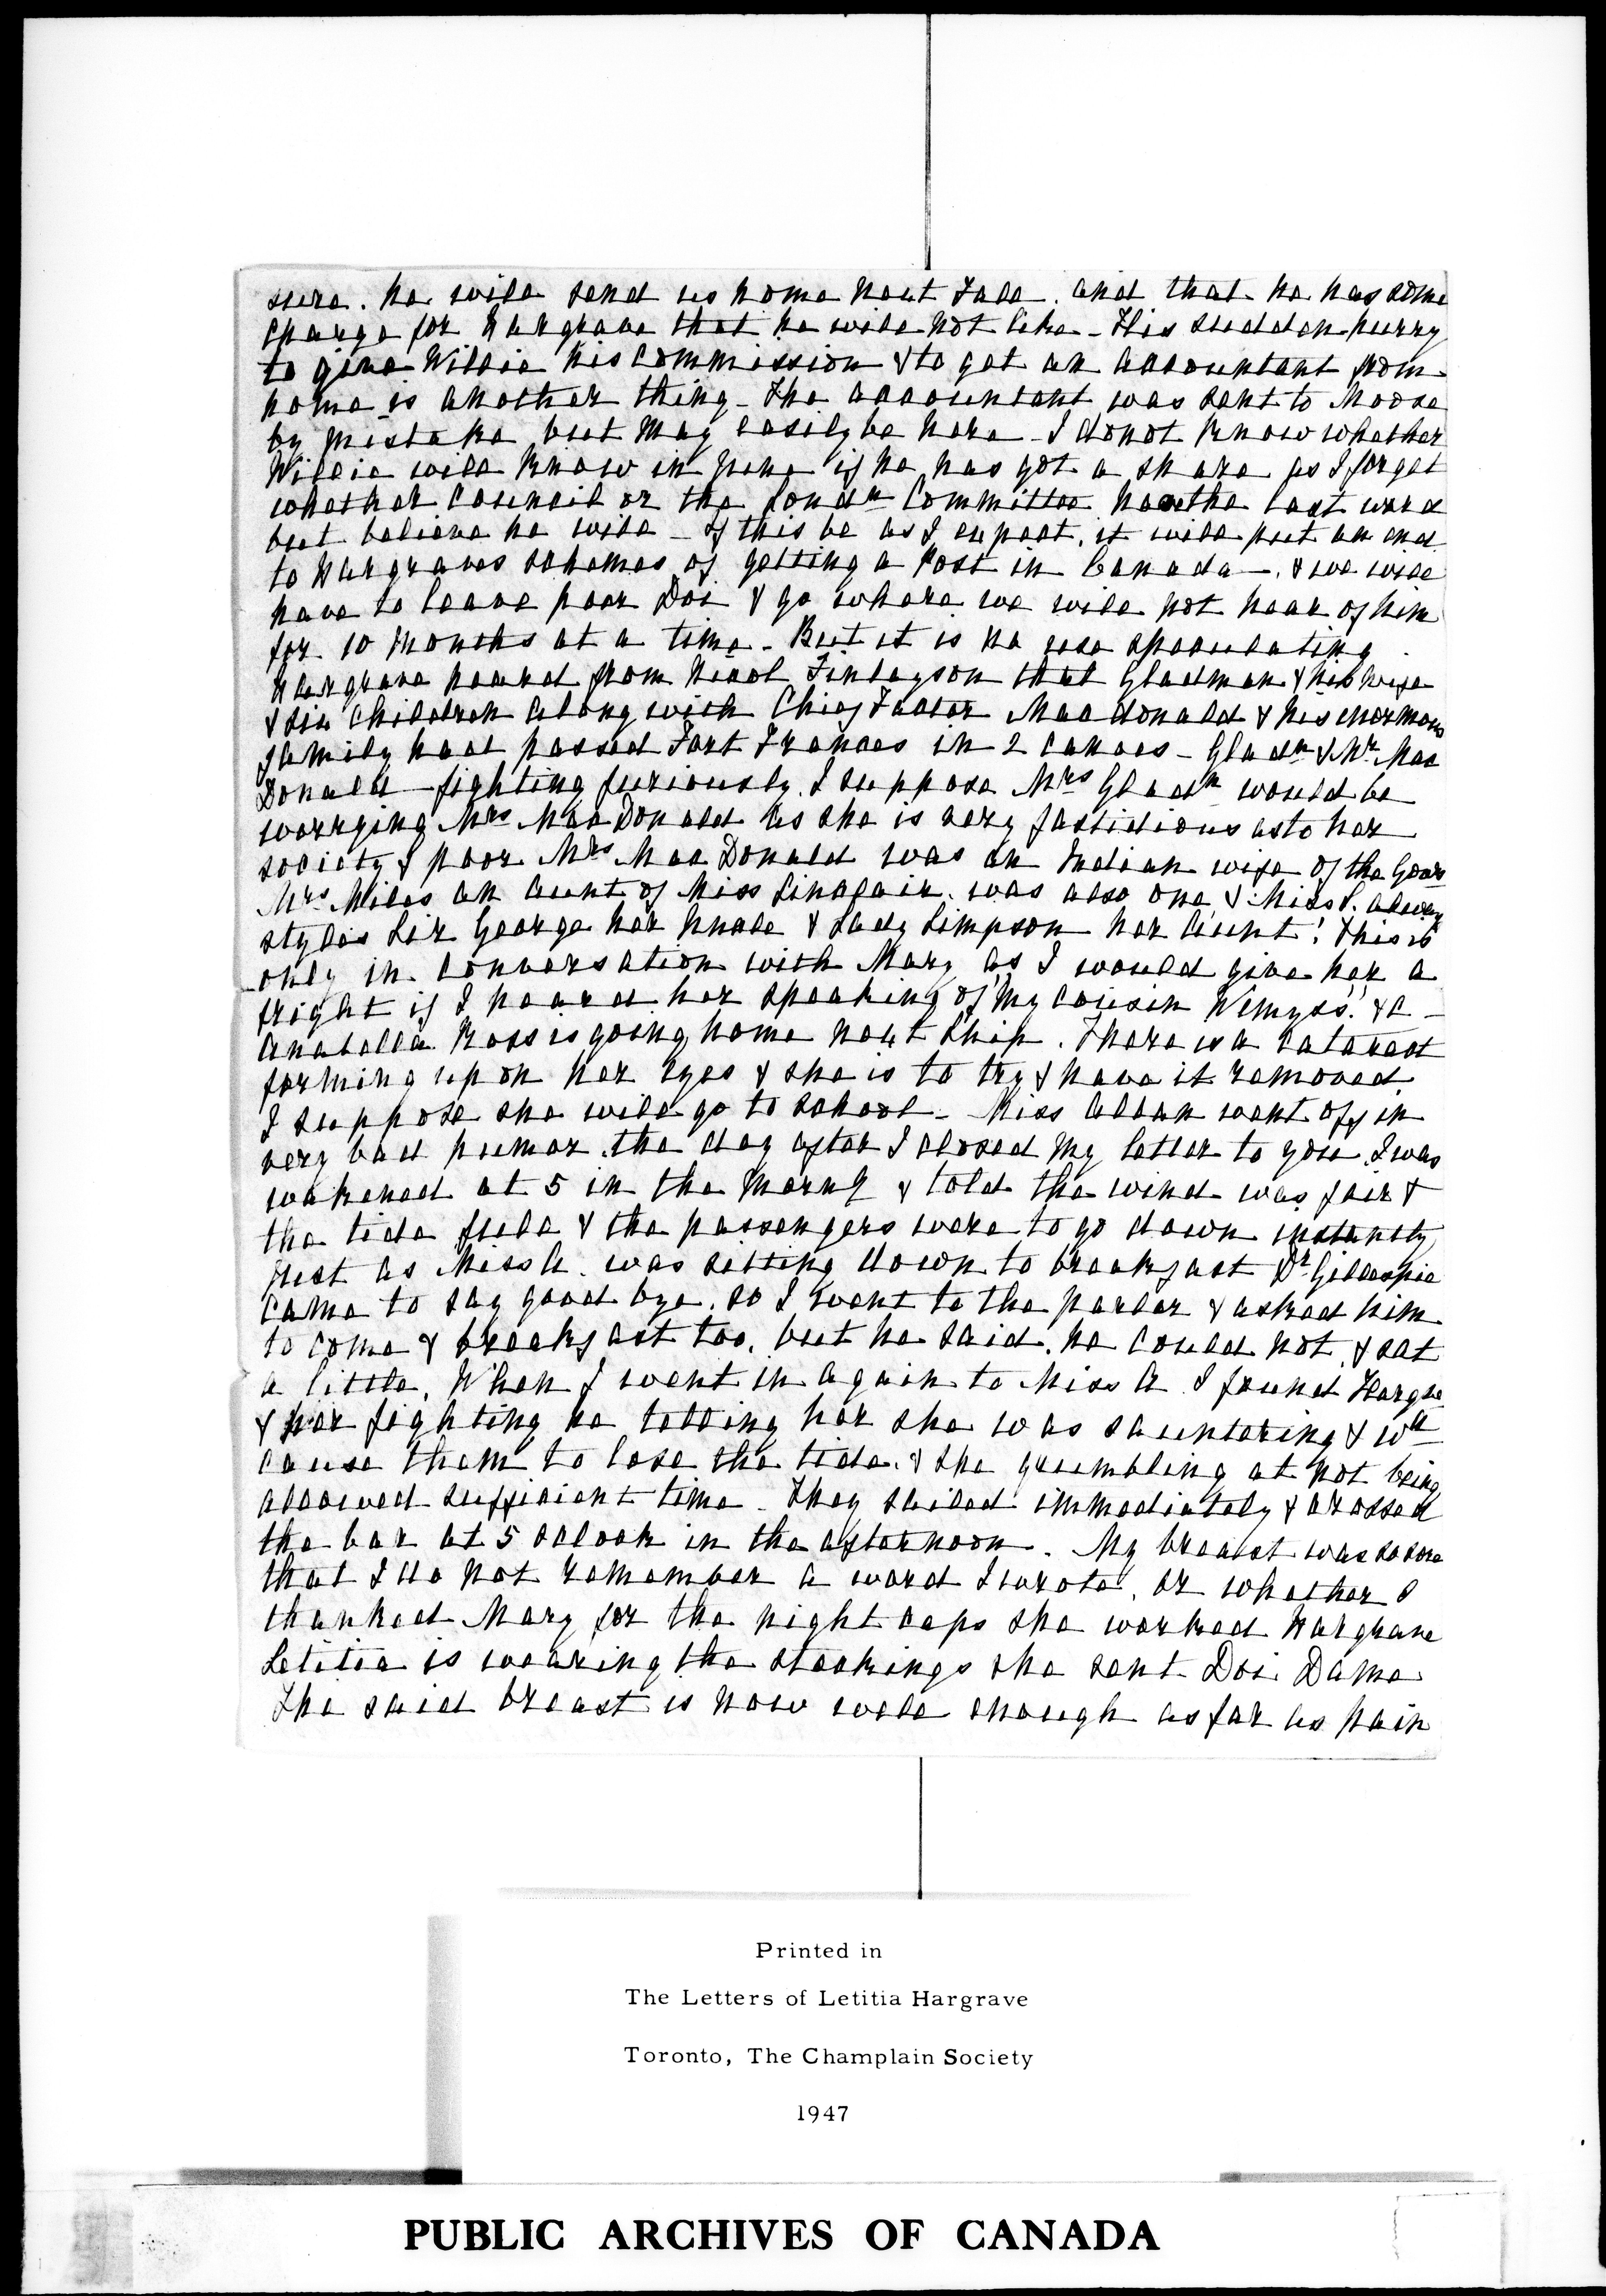 sure. he will send us home next Fall. and that he has some
charge for Hargrave that he will not like - His sudden hurry
to give Willie his commission & to get an accountant from
home is another thing - The accountant was sent to Moose
by mistake but may easily be here - I do not know whether
Willie will know in June if he has got a share as I forget
whether Council or the Londn Committee has the last word
but believe he will - If this be as I expect, it will put an end
to Hargraves schemes of getting a Post in Canada -. & we will
have to leave poor Doi & go where we will not hear of him
for 10 months at a time - But it is no use speculating
Hargrave heard from Nicol Finlayson that Gladman & his wife
& six children along with Chief Factor MacDonald & his enormous
family had passed Fort Frances in 2 canoes - Gladn & Mr Mac
Donald - fighting furiously. I suppose Mrs Gladn would be
worrying Mrs MacDonald as she is very fastidious as to her
society & poor Mrs MacDonald was an Indian wife of the Govrs
Mrs Miles an aunt of Miss Sinclair. was also one, & Miss S. always
styles Sir George her Uncle & Lady Simpson her Aunt! This is
only in conversation with Mary as I would give her a
fright if I heard her speaking of "my cousin Wemyss"! &c -
Anabella Ross is going home next ship. There is a cataract
forming upon her eyes & she is to try & have it removed
I suppose she will go to school - Miss Allan went off in
very bad humor. the day after I closed my letter to you. I was
wakened at 5 in the morng & told the wind was fair &
the tide full & the passengers were to go down instantly
Just as Miss A. was sitting down to breakfast Dr Gillespie
came to say good bye. so I went to the parlor & asked him
to come & breakfast too. but he said. he could not, & sat
a little. When I went in again to Miss A I found Hargve
& her fighting he telling her she was sauntering & wd
cause them to lose the tide. & she grumbling at not being
allowed sufficient time - They sailed immediately & crossed
the bar at 5 oclock in the afternoon. My breast was so sore
that I do not remember a word I wrote. or whether I
thanked Mary for the night caps she worked Hargrave
Letitia is wearing the stockings she sent Doi Dame
The said breast is now well enough as far as pain
Printed in
The Letters of Letitia Hargrave
Toronto, The Champlain Society
1947
PUBLIC ARCHIVES OF CANADA